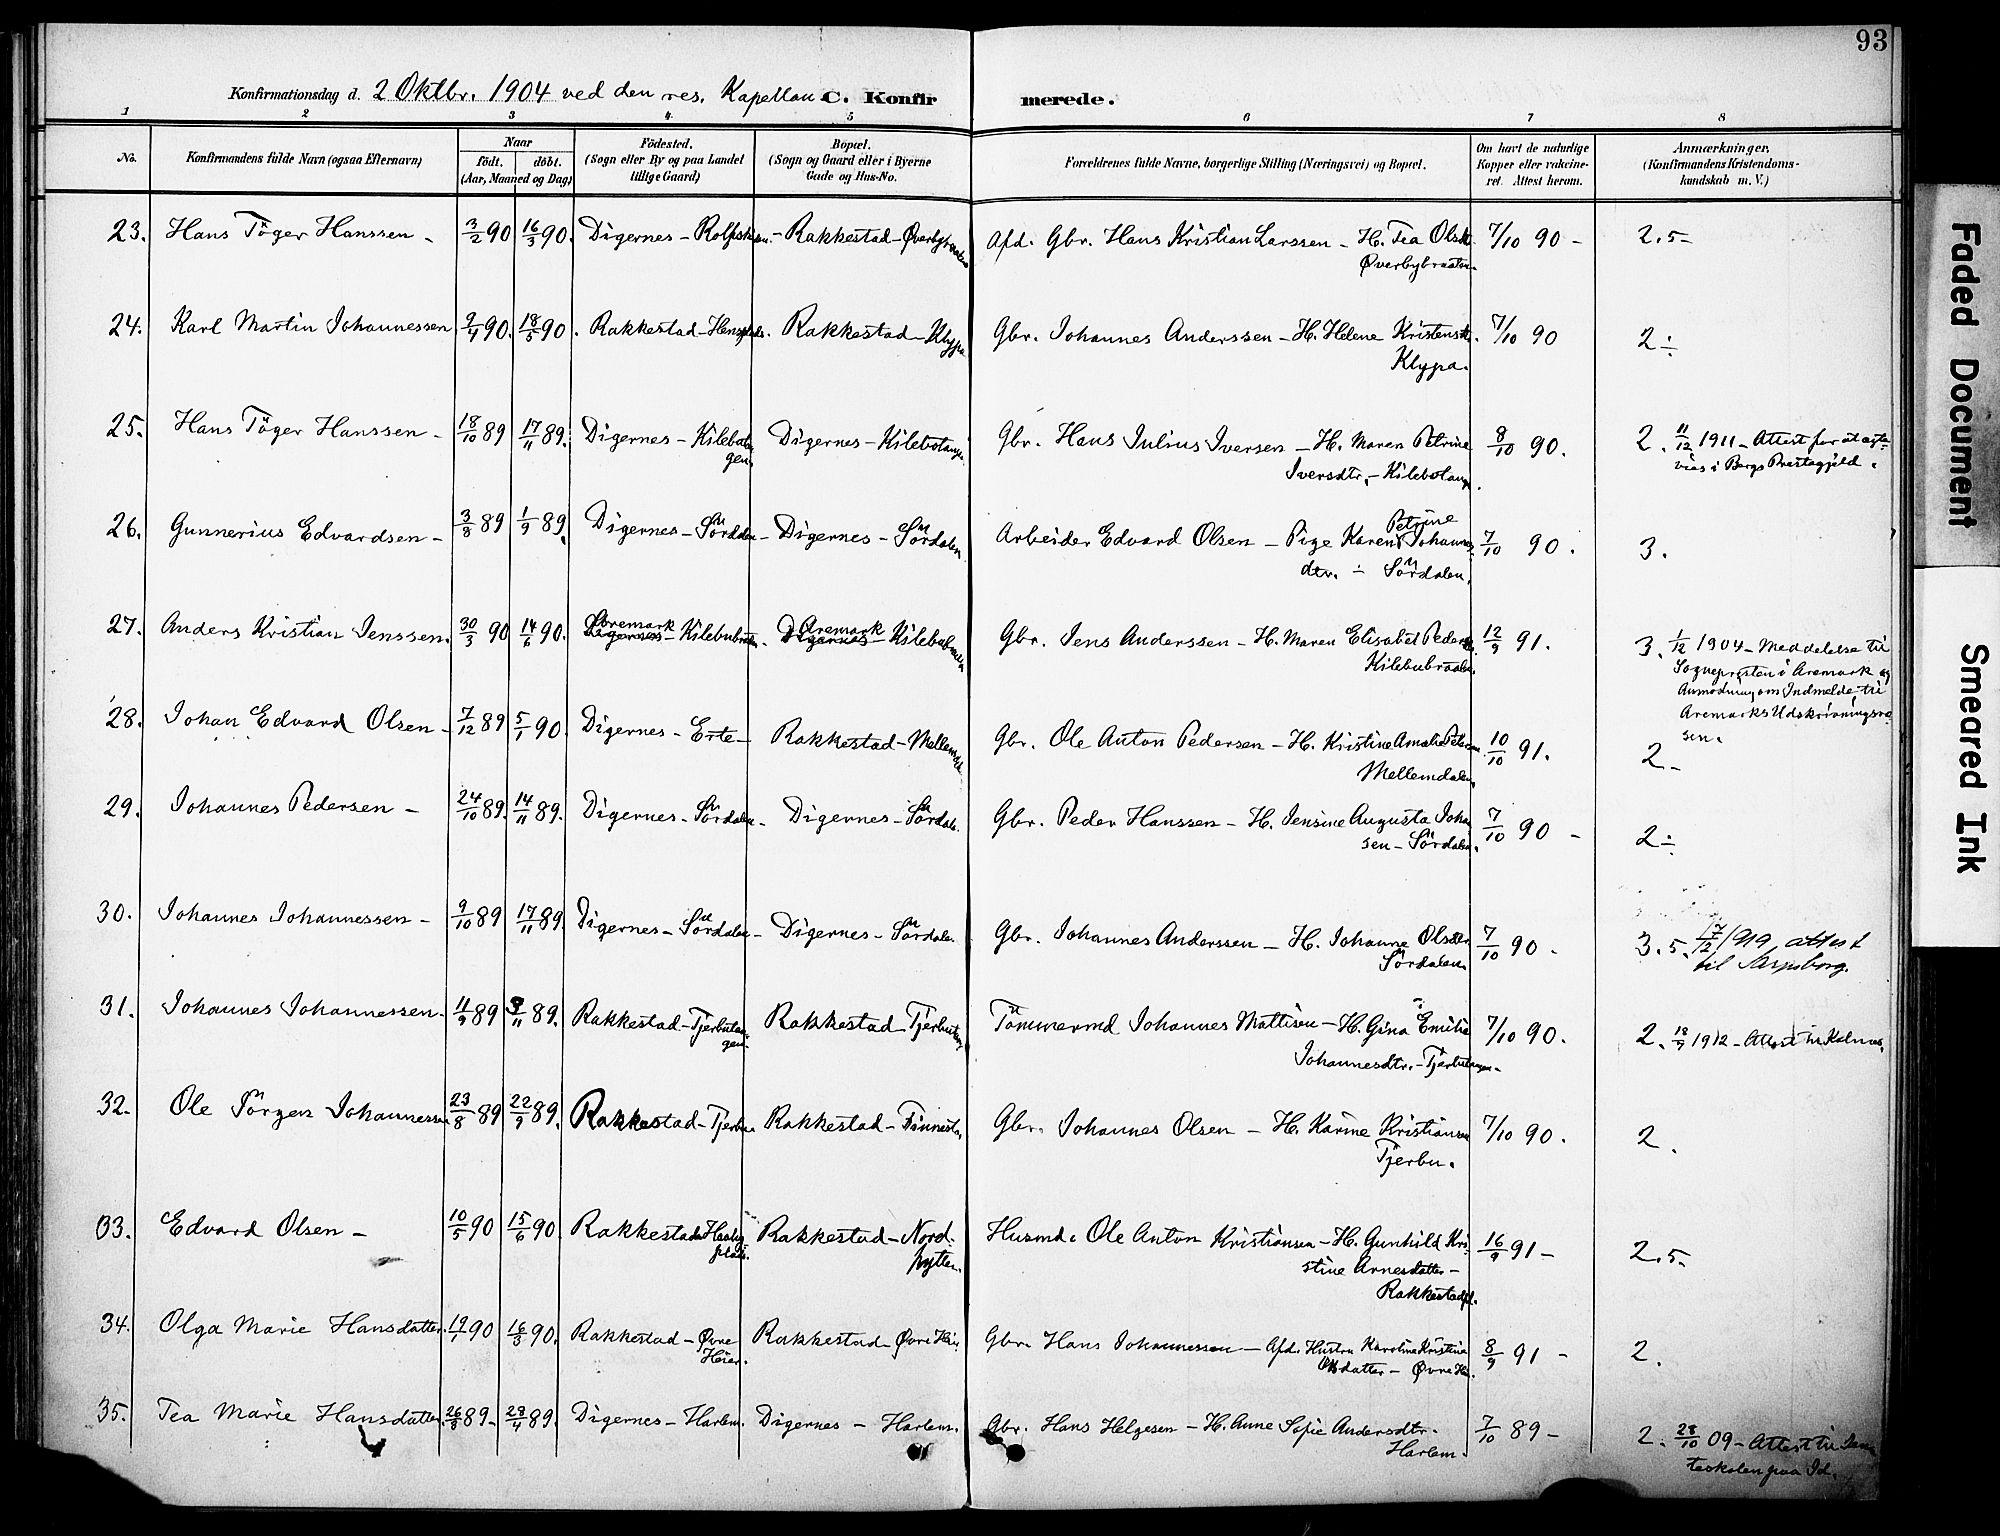 93
Konfirmationsdag d. 2 Oktbr. 1904 ved den res. Kapellan C. Konfir merede.
1 2 3 4 5 6 7 8
No. Konfirmandens fulde Navn (ogsaa Efternavn) Naar Födested. Bopæl. Forældrenes fulde Navne, borgerlige Stilling (Næringsvei) og Bopæl. Om havt de naturlige Anmærkninger,
födt. döbt. (Sogn eller By og paa Landet (Sogn og Gaard eller i Byerne Kopper eller vakcine- (Konfirmandens Kristendoms-
(Aar, Maaned og Dag) tillige Gaard) Gade og Hus-No. ret. Attest herom. kundskab m. V.)
23. Hans Töger Hanssen - 3/2 90 16/3 90. Digernes - - Rakkestad - Afd. Gbr. Hans Kristian Larssen - H. Tea Olsdt. 7/10 90 - 2.5-
Øverbybraaten.
24. Karl Martin Johannessen 9/4 90. 18/5 90. Rakkestad - Rakkestad - Klypa Gbr. Johannes Anderssen - H. Helene 7/10 90 2÷
Klypa.
25. Hans Töger Hanssen - 18/10 89 17/11 89. Digernes - Digernes - Gbr. Hans Julius Iversen - H. Maren Petrine 8/10 90. 2. 11/12 1911 - Attest for at
gen. Iversdtr. - vies i Bergs Prestegjeld.
26. Gunnerius Edvardsen - 3/8 89 1/9 89. Digernes - Sördalen - Digernes - Sördalen Arbeider Edvard Olsen - Pige Karen Petrine Johannes- 7/10 90. 3.
dtr. ÷ Sördalen.
27. Anders Kristian Jenssen. 30/3 90 14/6 90. Aremark Digernes - Kilebubraaten - Aremark Digernes - Kilebubraaten Gbr. Jens Anderssen - H. Maren Elisabet 12/9 91. 3. 1/12 1904 - Meddelelse til
Kilebubraaten. Sognepresten i Aremark og
Anmodning om Indmelde. til
Aremarks Udskrivningsvæ
sen.
28. Johan Edvard Olsen - 7/12 89 5/1 90. Digernes - Erte - Rakkestad - Gbr. Ole Anton Pedersen - H. Kristine Amalie 10/10 91. 2-
Mellemdalen.
29. Johannes Pedersen - 24/10 89. 14/11 89. Digernes - Sördalen - Digernes - Sördalen. Gbr. Peder Hanssen - H. Jensine Augusta Johan 7/10 90 - 2÷
sen - Sördalen.
30. Johannes Johannessen - 9/10 89 17/11 89. Digernes - Sördalen - Digernes - Sördalen. Gbr. Johannes Anderssen - H. Johanne Olsdtr. 7/10 90 - 3.5. 17/12 1919 attest
Sördalen. til Sarpsborg.
31. Johannes Johannessen. 11/9 89 3/11 89. Rakkestad - Tjerbutan- Rakkestad - Tömmermd Johannes Mattisen - H. Gina Emilie 7/10 90. 2. 18/9 1912 - Attest til
gen. Johannesdtr. - Tjerbutangen.
32. Ole Jörgen Johannessen 23/8 89 22/9 89. Rakkestad - Tjerbu. Rakkestad - Finnestad. Gbr. Johannes Olsen - H. Karine 7/10 90. 2.
Tjerbu.
33. Edvard Olsen - 10/5 90 15/6 90. Rakkestad Rakkestad - Nord- Husmd. Ole Anton Kristiansen - H. Gunhild Kri- 16/9 91 - 2.5-
hytten. stine Arnesdatter -
34. Olga Marie Hansdatter. 19/1 90 16/3 90. Rakkestad - Øvre Rakkestad - Øvre Heier. Gbr. Hans Johannessen - Afd. Hustru Karoline Kristine 8/9 91 - 2.
Heier. Olsdatter - Øvre
35. Tea Marie Hansdatter. 26/3 89 - 28/4 89. Digernes - Harlem. Digernes - Harlem. Gbr. Hans Helgesen - H. Anne Sofie Andersdtr. 7/10 89 - 2. 28/10 09 - Attest til
Harlem. teskolen paa Id.
Faded Document
Smeared Ink